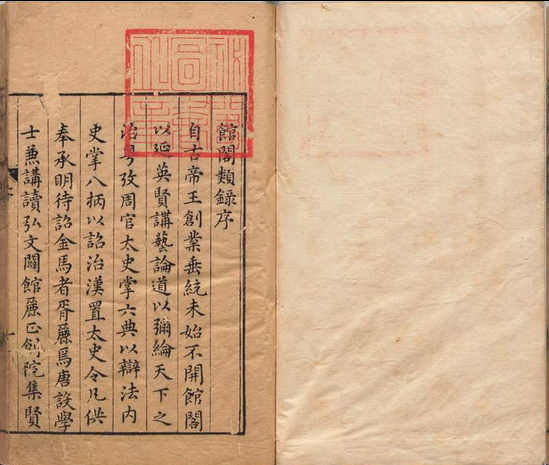 館閣類錄序
自古帝王創業垂統未始不開館閣
以延英賢講藝論道以彌綸天下之
治粤攷周官太史掌六典以辯法內
史掌八柄以詔治漢置太史令凡供
奉承明待詔金馬者胥屬焉唐設學
士兼講讀弘文闢館麗正剏院集賢